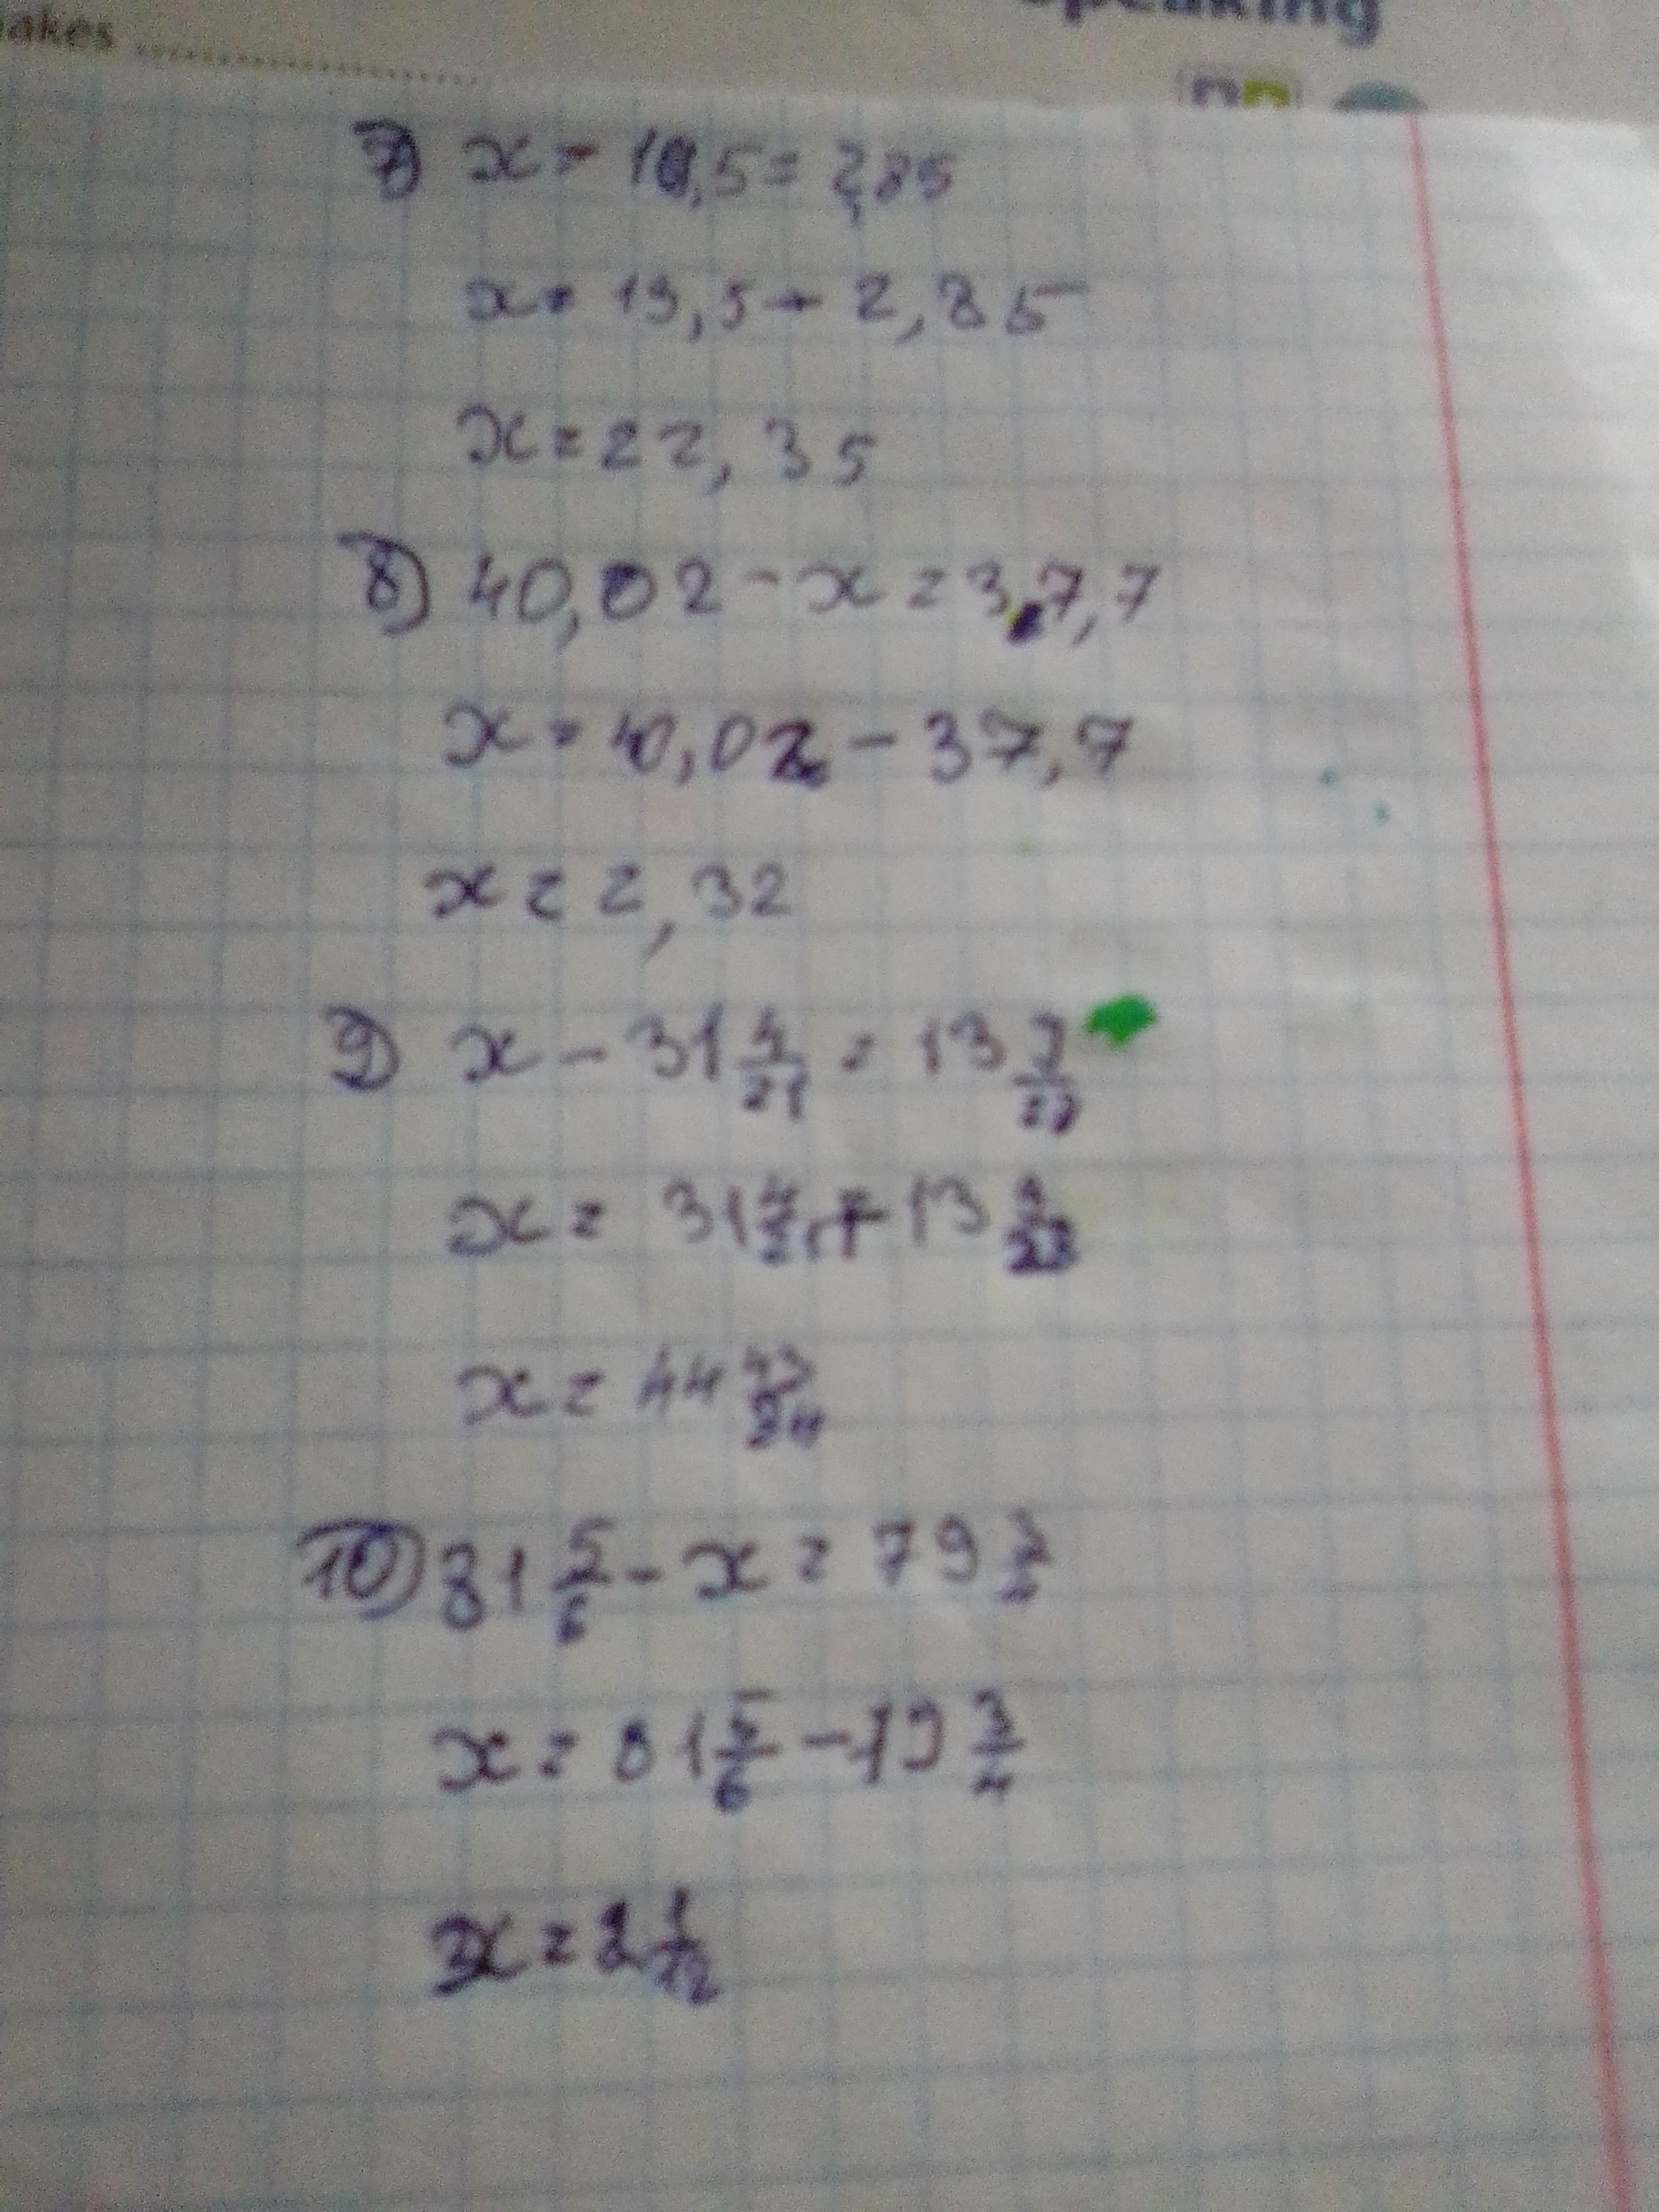 akes
speaking
7) x - 19,5 = 2,85
x = 19,5 + 2,85
x = 22,35
8) 40,02 - x = 37,7
x = 40,02 - 37,7
x = 2,32
9) x - 31 4/21 = 13
x = 31 + 13
x = 44
10) 81 5/6 - x = 79
x = 81 5/6 - 79 3/4
x = 2 1/12